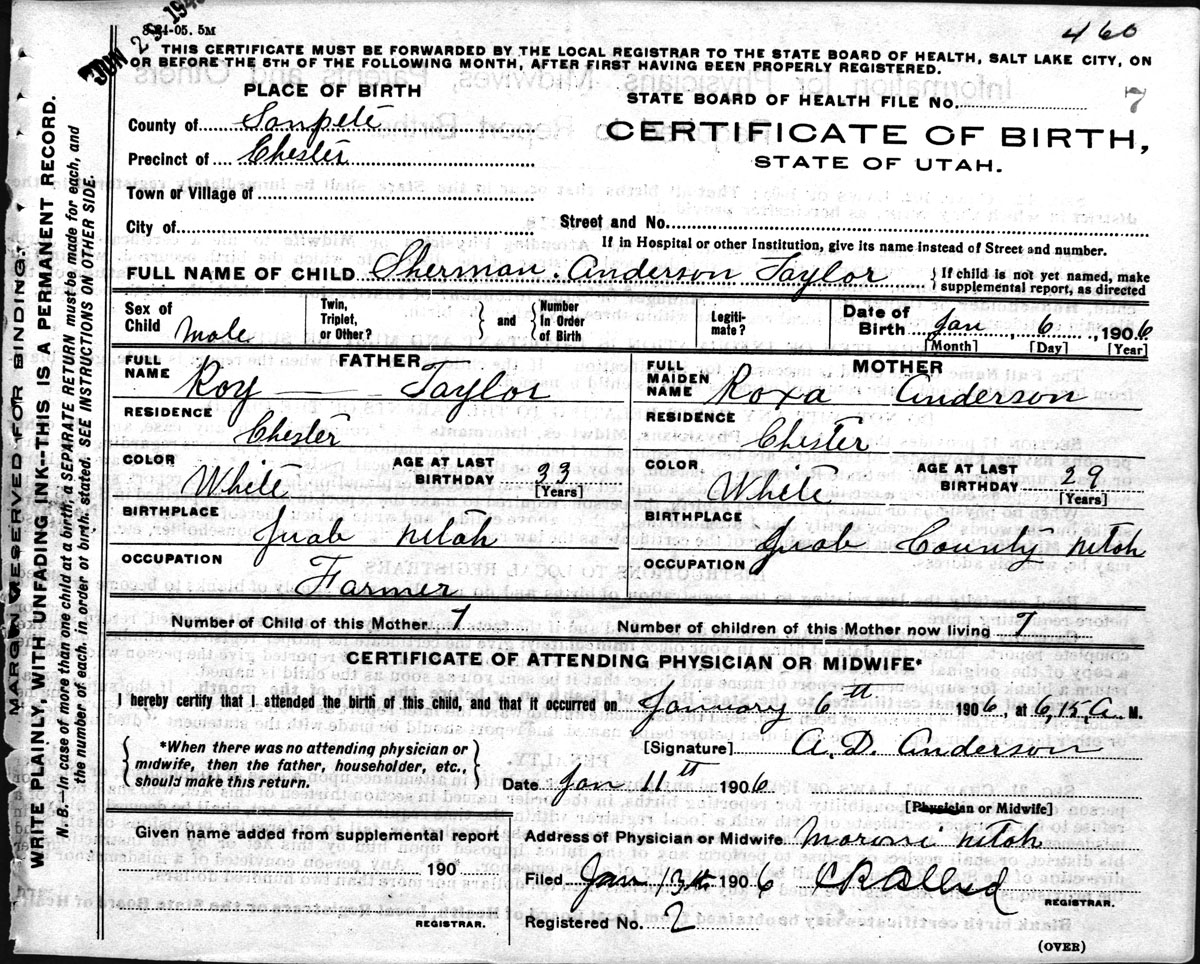 JUN 23 194
8-24-05. 5M
460
THIS CERTIFICATE MUST BE FORWARDED BY THE LOCAL REGISTRAR TO THE STATE BOARD OF HEALTH, SALT LAKE CITY, ON
OR BEFORE THE 5TH OF THE FOLLOWING MONTH, AFTER FIRST HAVING BEEN PROPERLY REGISTERED.
PLACE OF BIRTH
STATE BOARD OF HEALTH FILE No. 7
County of Sanpete
CERTIFICATE OF BIRTH,
Precinct of Chester
STATE OF UTAH.
Town or Village of
City of Street and No.
If in Hospital or other Institution, give its name instead of Street and number.
FULL NAME OF CHILD Sherman Anderson Taylor
If child is not yet named, make
supplemental report, as directed
Sex of Child Male
Twin, Triplet, or Other?
and
Number In Order of Birth
Legiti-mate?
Date of Birth Jan 6, 1906
[Month] [Day] [Year]
FATHER
FULL NAME Roy Taylor
MOTHER
FULL MAIDEN NAME Roxa Anderson
RESIDENCE Chester
RESIDENCE Chester
COLOR White AGE AT LAST BIRTHDAY 33 [Years]
COLOR White AGE AT LAST BIRTHDAY 29 [Years]
BIRTHPLACE Juab Utah
BIRTHPLACE Juab County Utah
OCCUPATION Farmer
OCCUPATION
Number of Child of this Mother 7
Number of children of this Mother now living 7
CERTIFICATE OF ATTENDING PHYSICIAN OR MIDWIFE*
I hereby certify that I attended the birth of this child, and that it occurred on January 6th 1906, at 6,15, A. M.
*When there was no attending physician or
midwife, then the father, householder, etc.,
should make this return.
[Signature] A. D. Anderson
Date Jan 11th 1906
[Physician or Midwife]
Given name added from supplemental report
190
REGISTRAR.
Address of Physician or Midwife Moroni Utah
Filed Jan 13th 1906
REGISTRAR.
Registered No. 2
(OVER)
MARGIN RESERVED FOR BINDING.
WRITE PLAINLY, WITH UNFADING INK--THIS IS A PERMANENT RECORD.
N. B.—In case of more than one child at a birth, a SEPARATE RETURN must be made for each, and
the number of each, in order of birth, stated. SEE INSTRUCTIONS ON OTHER SIDE.